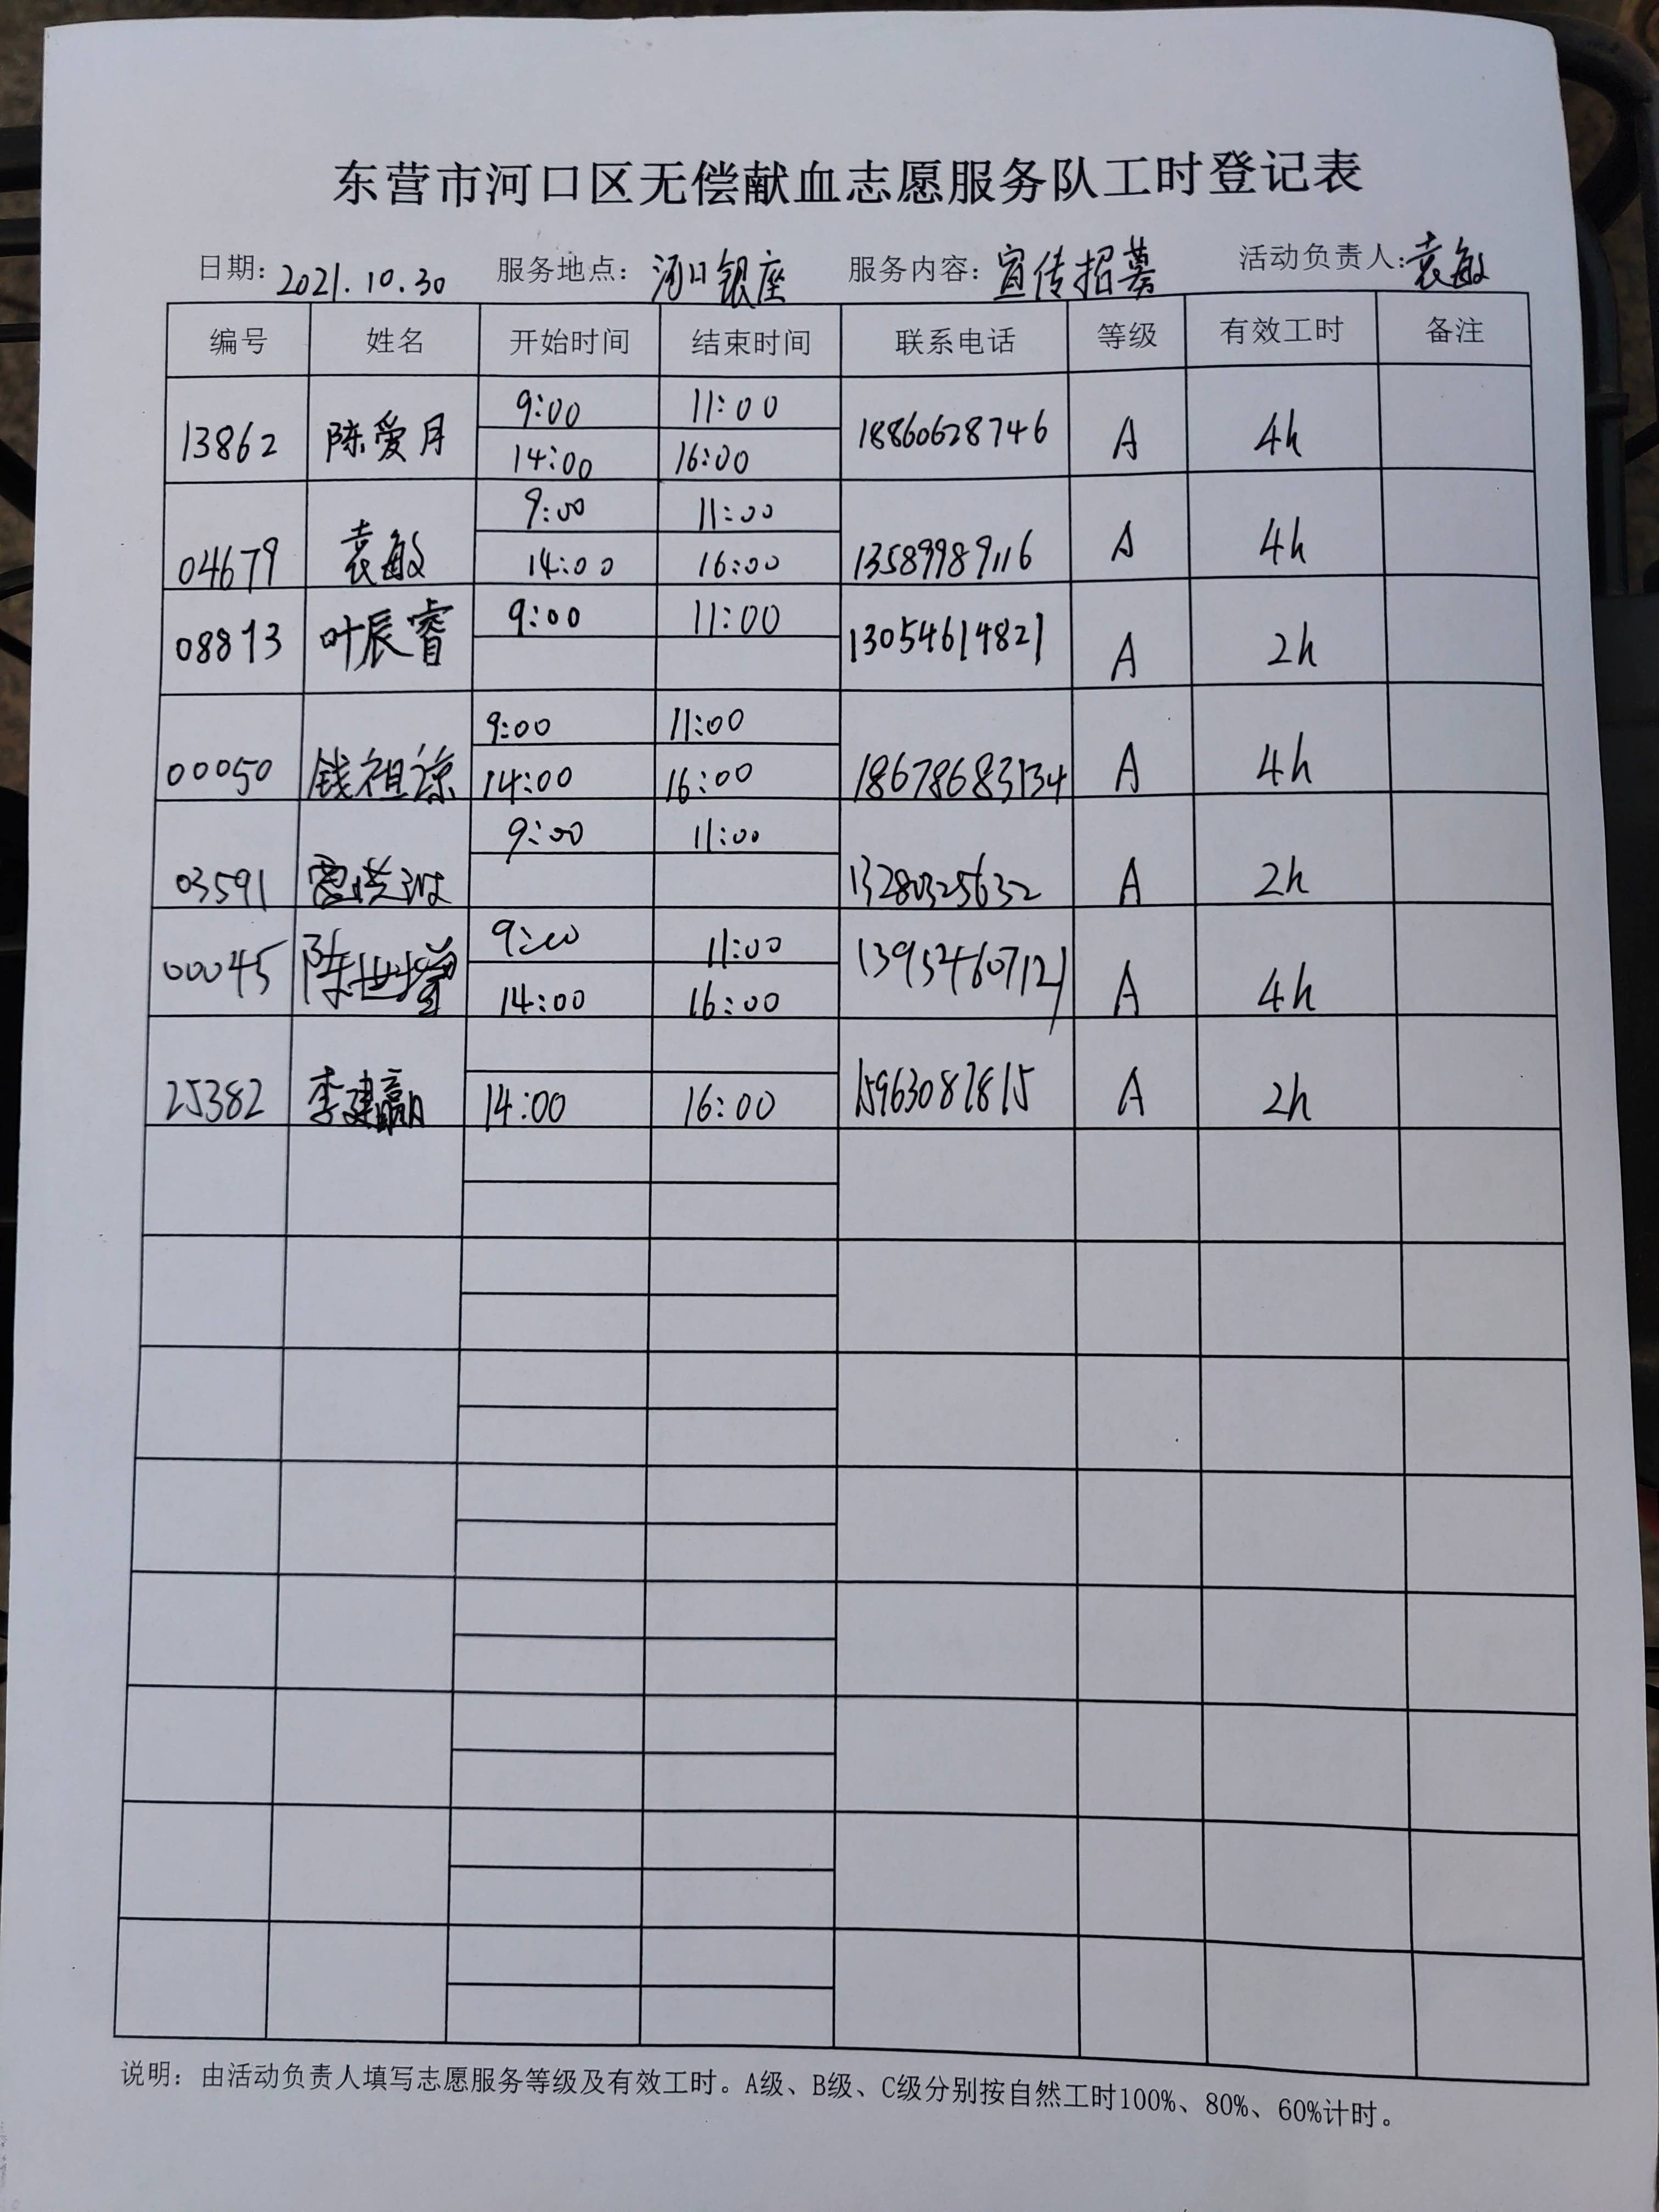 东营市河口区无偿献血志愿服务队工时登记表
日期: 2021.10.30 服务地点: 河口银座 服务内容: 宣传招募 活动负责人: 袁敏
编号 姓名 开始时间 结束时间 联系电话 等级 有效工时 备注
9:00 11:00
13862 陈爱月 18860628746 A 4h
14:00 16:00
9:00 11:00
04679 袁敏 13589989116 A 4h
14:00 16:00
08893 叶辰睿 9:00 11:00 13054614821 A 2h
9:00 11:00
00050 钱祖谅 14:00 16:00 18678683134 A 4h
9:00 11:00
03591 13280325632 A 2h
9:00 11:00
00045 陈世莹 13954607121 A 4h
14:00 16:00
25382 李建赢 14:00 16:00 15963087815 A 2h
说明: 由活动负责人填写志愿服务等级及有效工时。A级、B级、C级分别按自然工时100%、80%、60%计时。